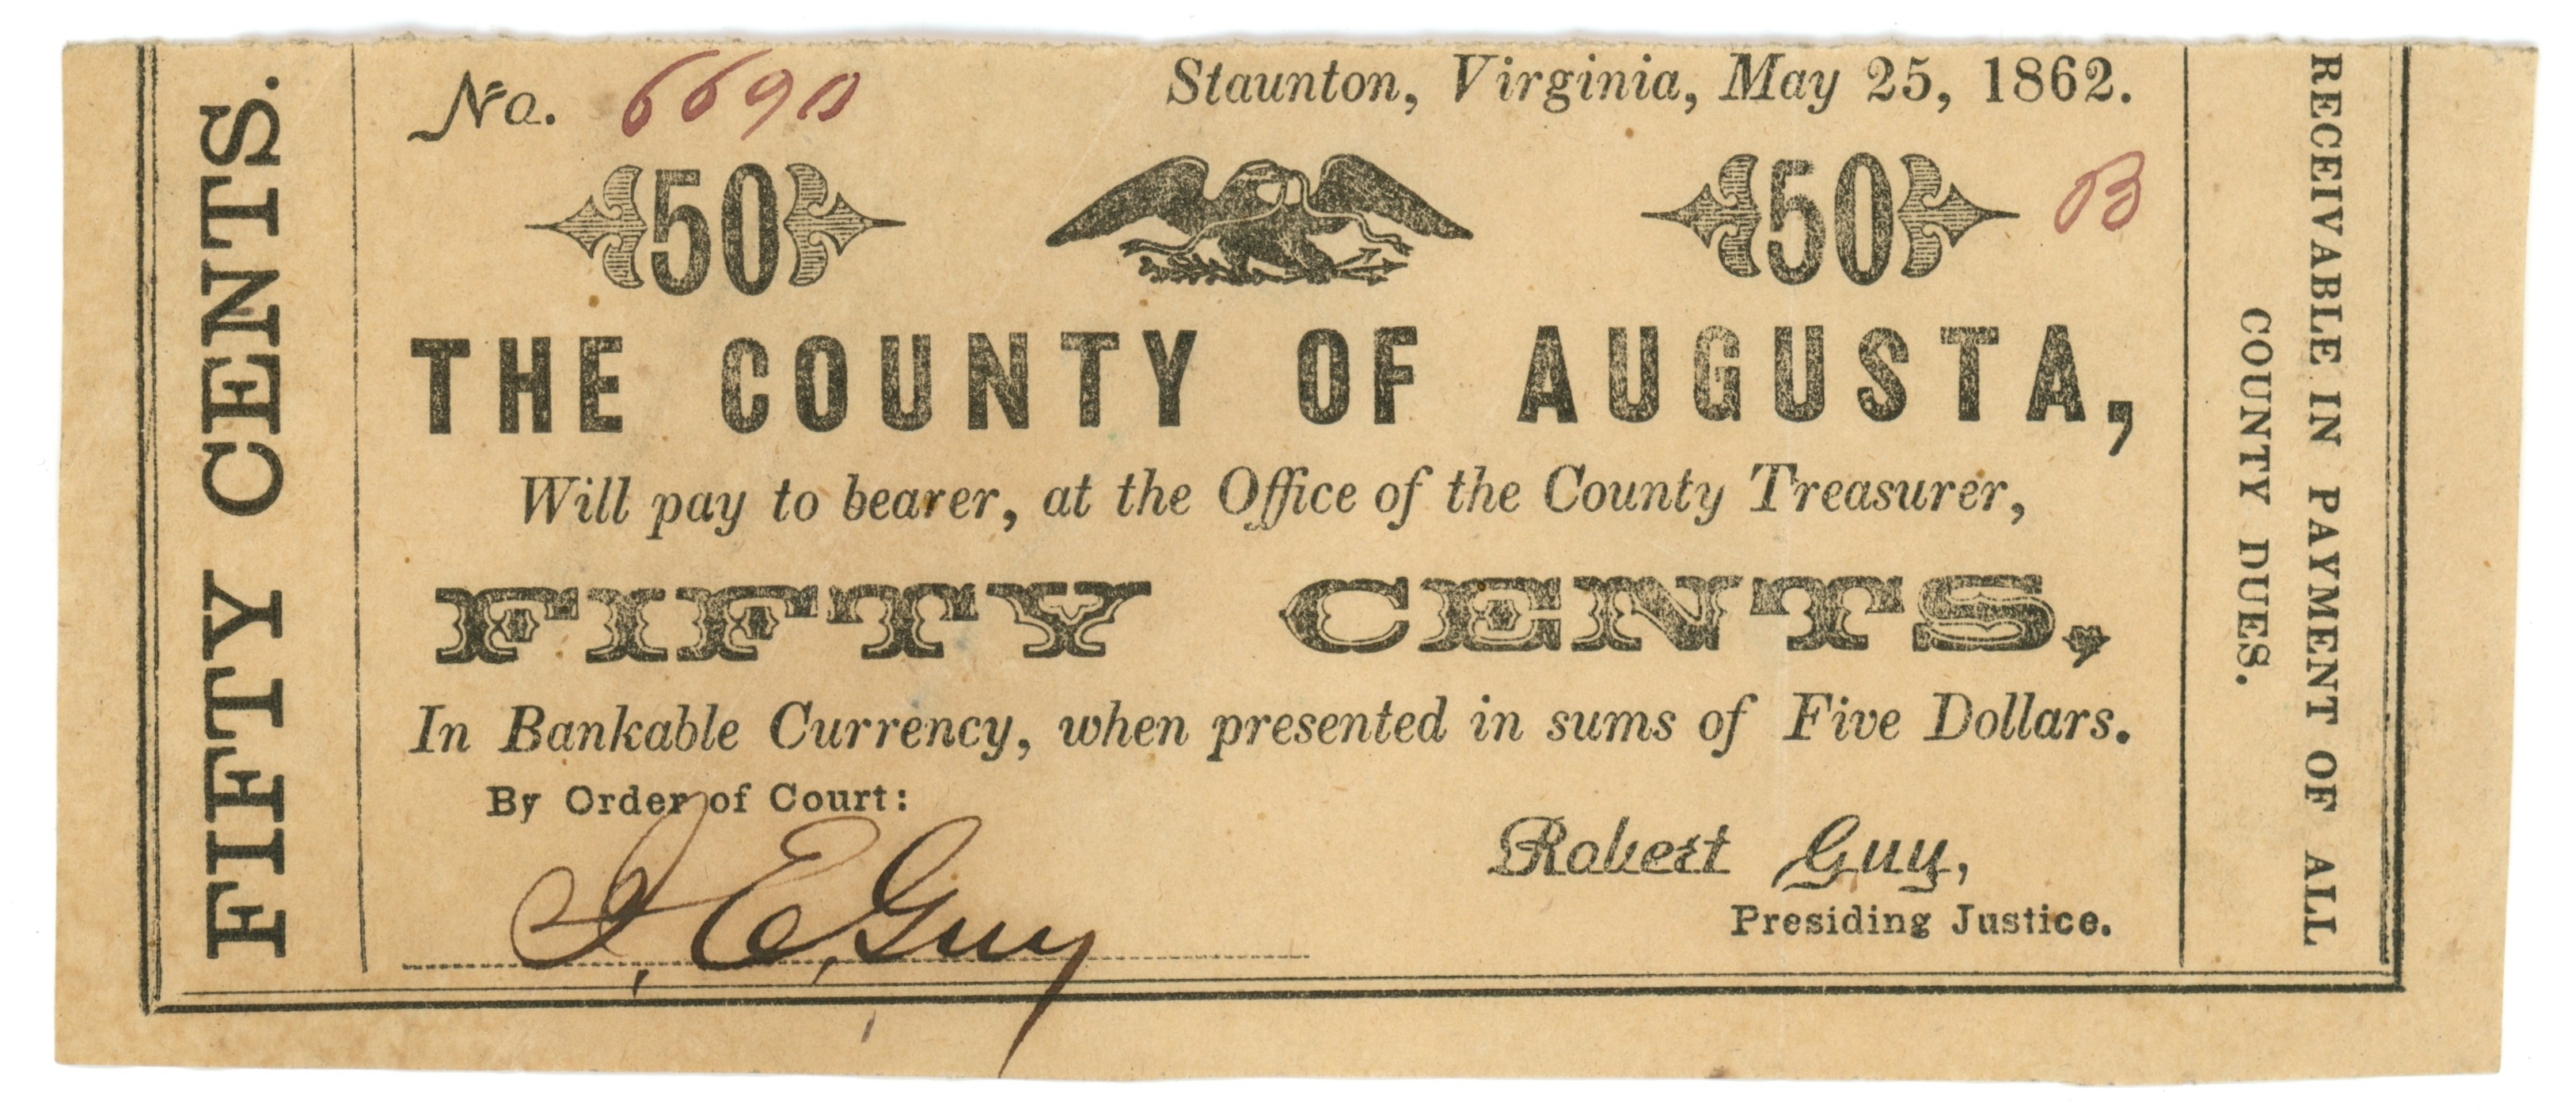 FIFTY CENTS.
No. 6690
Staunton, Virginia, May 25, 1862.
50
50
B
THE COUNTY OF AUGUSTA,
Will pay to bearer, at the Office of the County Treasurer,
FIFTY CENTS,
In Bankable Currency, when presented in sums of Five Dollars.
By Order of Court:
J. E. Guy
Robert Guy,
Presiding Justice.
RECEIVABLE IN PAYMENT OF ALL
COUNTY DUES.